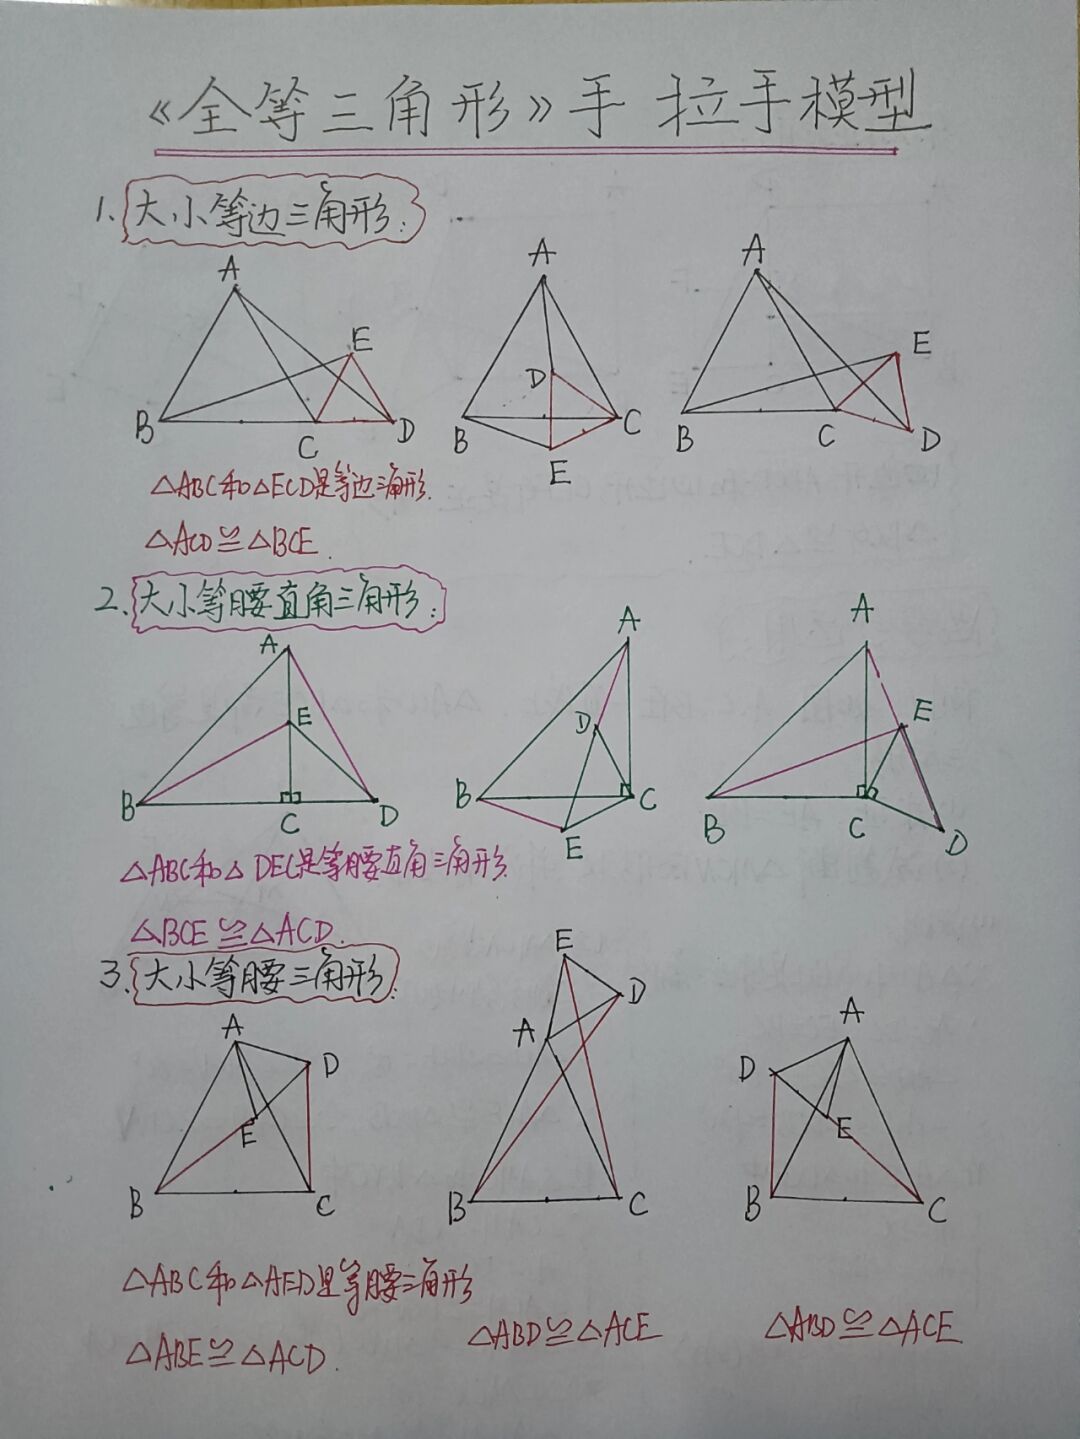 《全等三角形》手拉手模型
1. 大小等边三角形:
A
E
B
C
D
A
D
B
C
E
A
E
B
C
D
△ABC和△ECD是等边三角形.
△ACD≌△BCE.
2. 大小等腰直角三角形:
A
E
B
C
D
A
D
B
C
E
A
E
B
C
D
△ABC和△DEC是等腰直角三角形.
△BCE≌△ACD.
3. 大小等腰三角形.
A
D
E
B
C
E
D
A
B
C
A
D
E
B
C
△ABC和△AED是等腰三角形
△ABE≌△ACD.
△ABD≌△ACE
△ABD≌△ACE